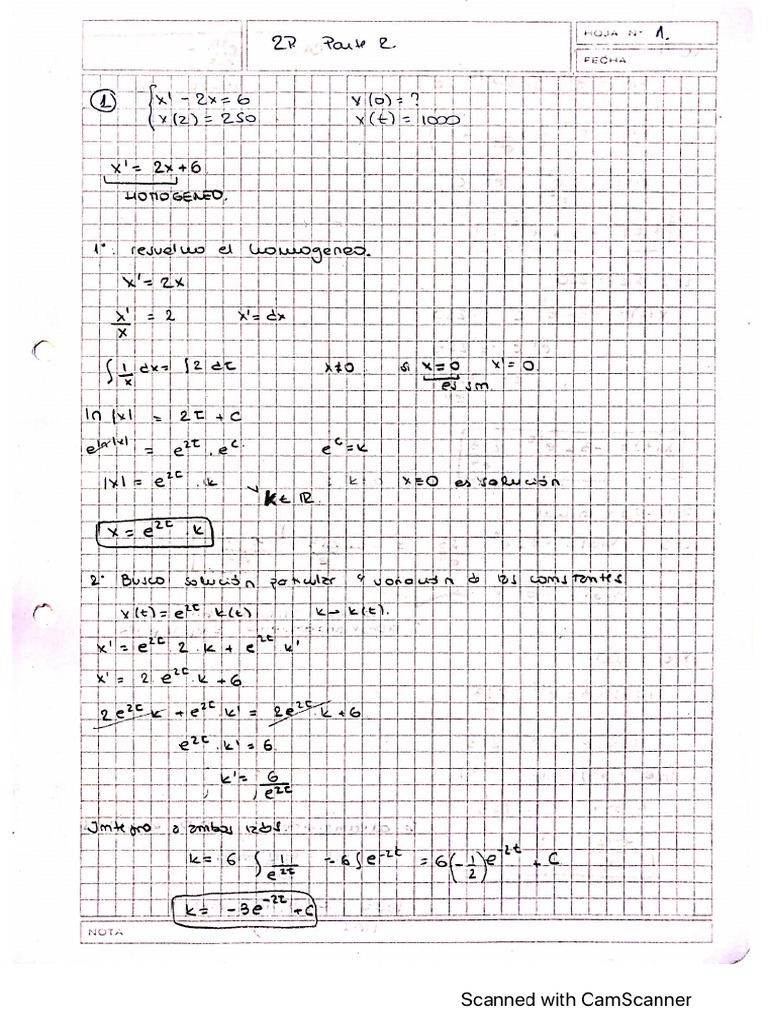 2P Parte 2.
HOJA N° 1.
FECHA
① { x' - 2x = 6 x(0) = ?
x(2) = 250 x(t) = 1000
x' = 2x + 6
HOMOGENEO.
1° resuelvo el homogeneo.
x' = 2x
x'/x = 2 x' = dx
∫ 1/x dx = ∫ 2 dt x≠0 si x=0 x'=0
es sol.
ln |x| = 2t + c
e^ln|x| = e^2t . e^c e^c = k
|x| = e^2t . k k∈ℝ. k x=0 es solución
x = e^2t . k
2° Busco solución particular variación de las constantes
x(t) = e^2t . k(t) k → k(t).
x' = e^2t 2 . k + e^2t k'
x' = 2 e^2t . k + 6
2e^2t k + e^2t . k' = 2e^2t . k + 6
e^2t . k' = 6.
k' = 6/e^2t
Integro a ambos lados.
k = 6 ∫ 1/e^2t = 6 ∫ e^-2t = 6(-1/2) e^-2t + C
k = -3e^-2t + C
NOTA
Scanned with CamScanner